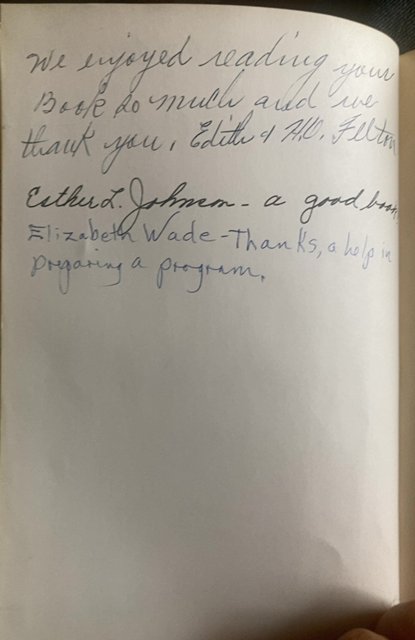 We enjoyed reading your
Book so much and we
thank you, Edith & H.O. Felton
Esther L. Johnson - a good book
Elizabeth Wade - Thanks, a help in
preparing a program.